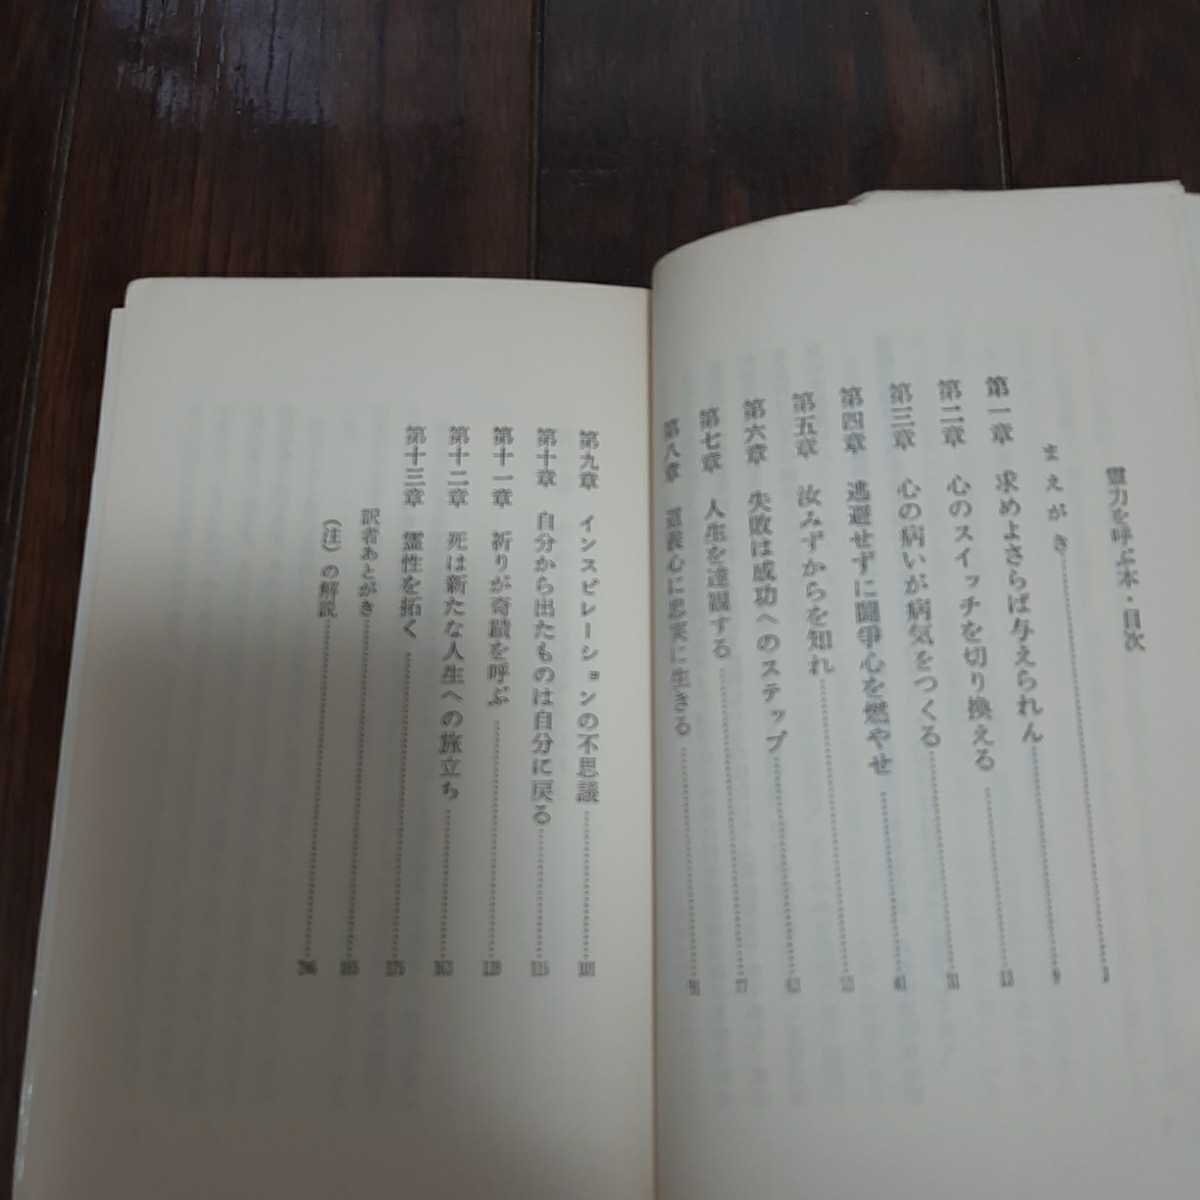 霊力を呼ぶ本・目次
まえがき
第一章 求めよさらば与えられん 13
第二章 心のスイッチを切り換える 31
第三章 心の病いが病気をつくる 41
第四章 逃避せずに闘争心を燃やせ
第五章 汝みずからを知れ
第六章 失敗は成功へのステップ
第七章 人生を達観する 77
第八章 道義心に忠実に生きる 91
第九章 インスピレーションの不思議 101
第十章 自分から出たものは自分に戻る 115
第十一章 祈りが奇蹟を呼ぶ 139
第十二章 死は新たな人生への旅立ち 163
第十三章 霊性を拓く 175
訳者あとがき
(注)の解説